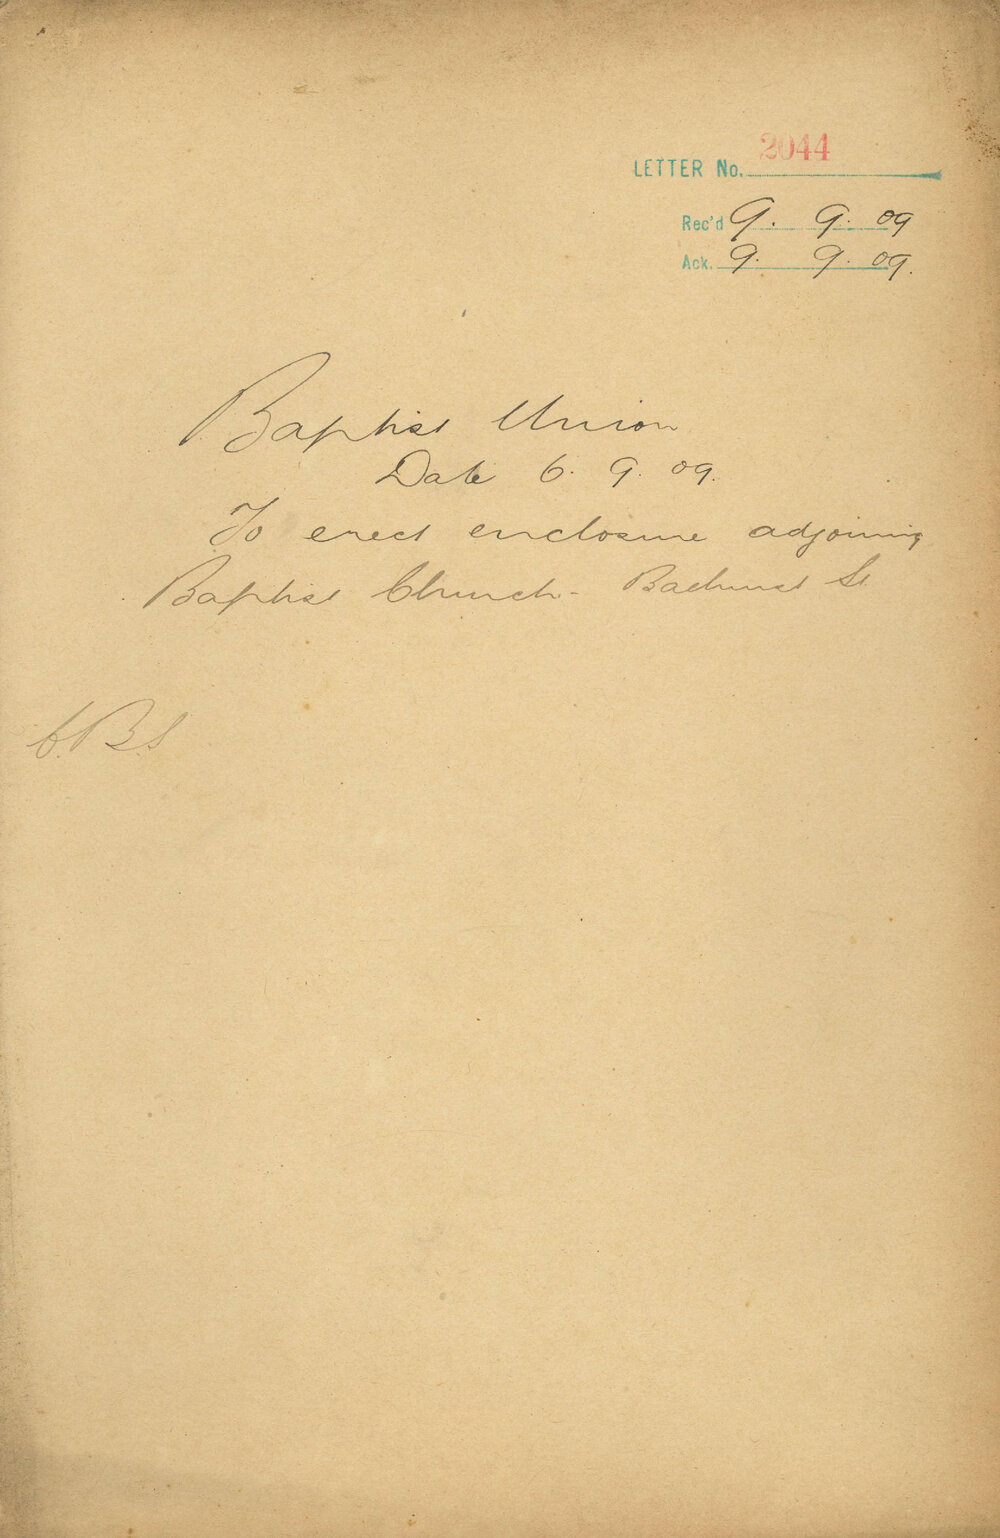 LETTER No. 2044
Rec'd 9. 9. 09
Ack. 9. 9. 09.
Baptist Union
Date 6. 9. 09.
To erect enclosure adjoining
Baptist Church - Bathurst St
C.B.S